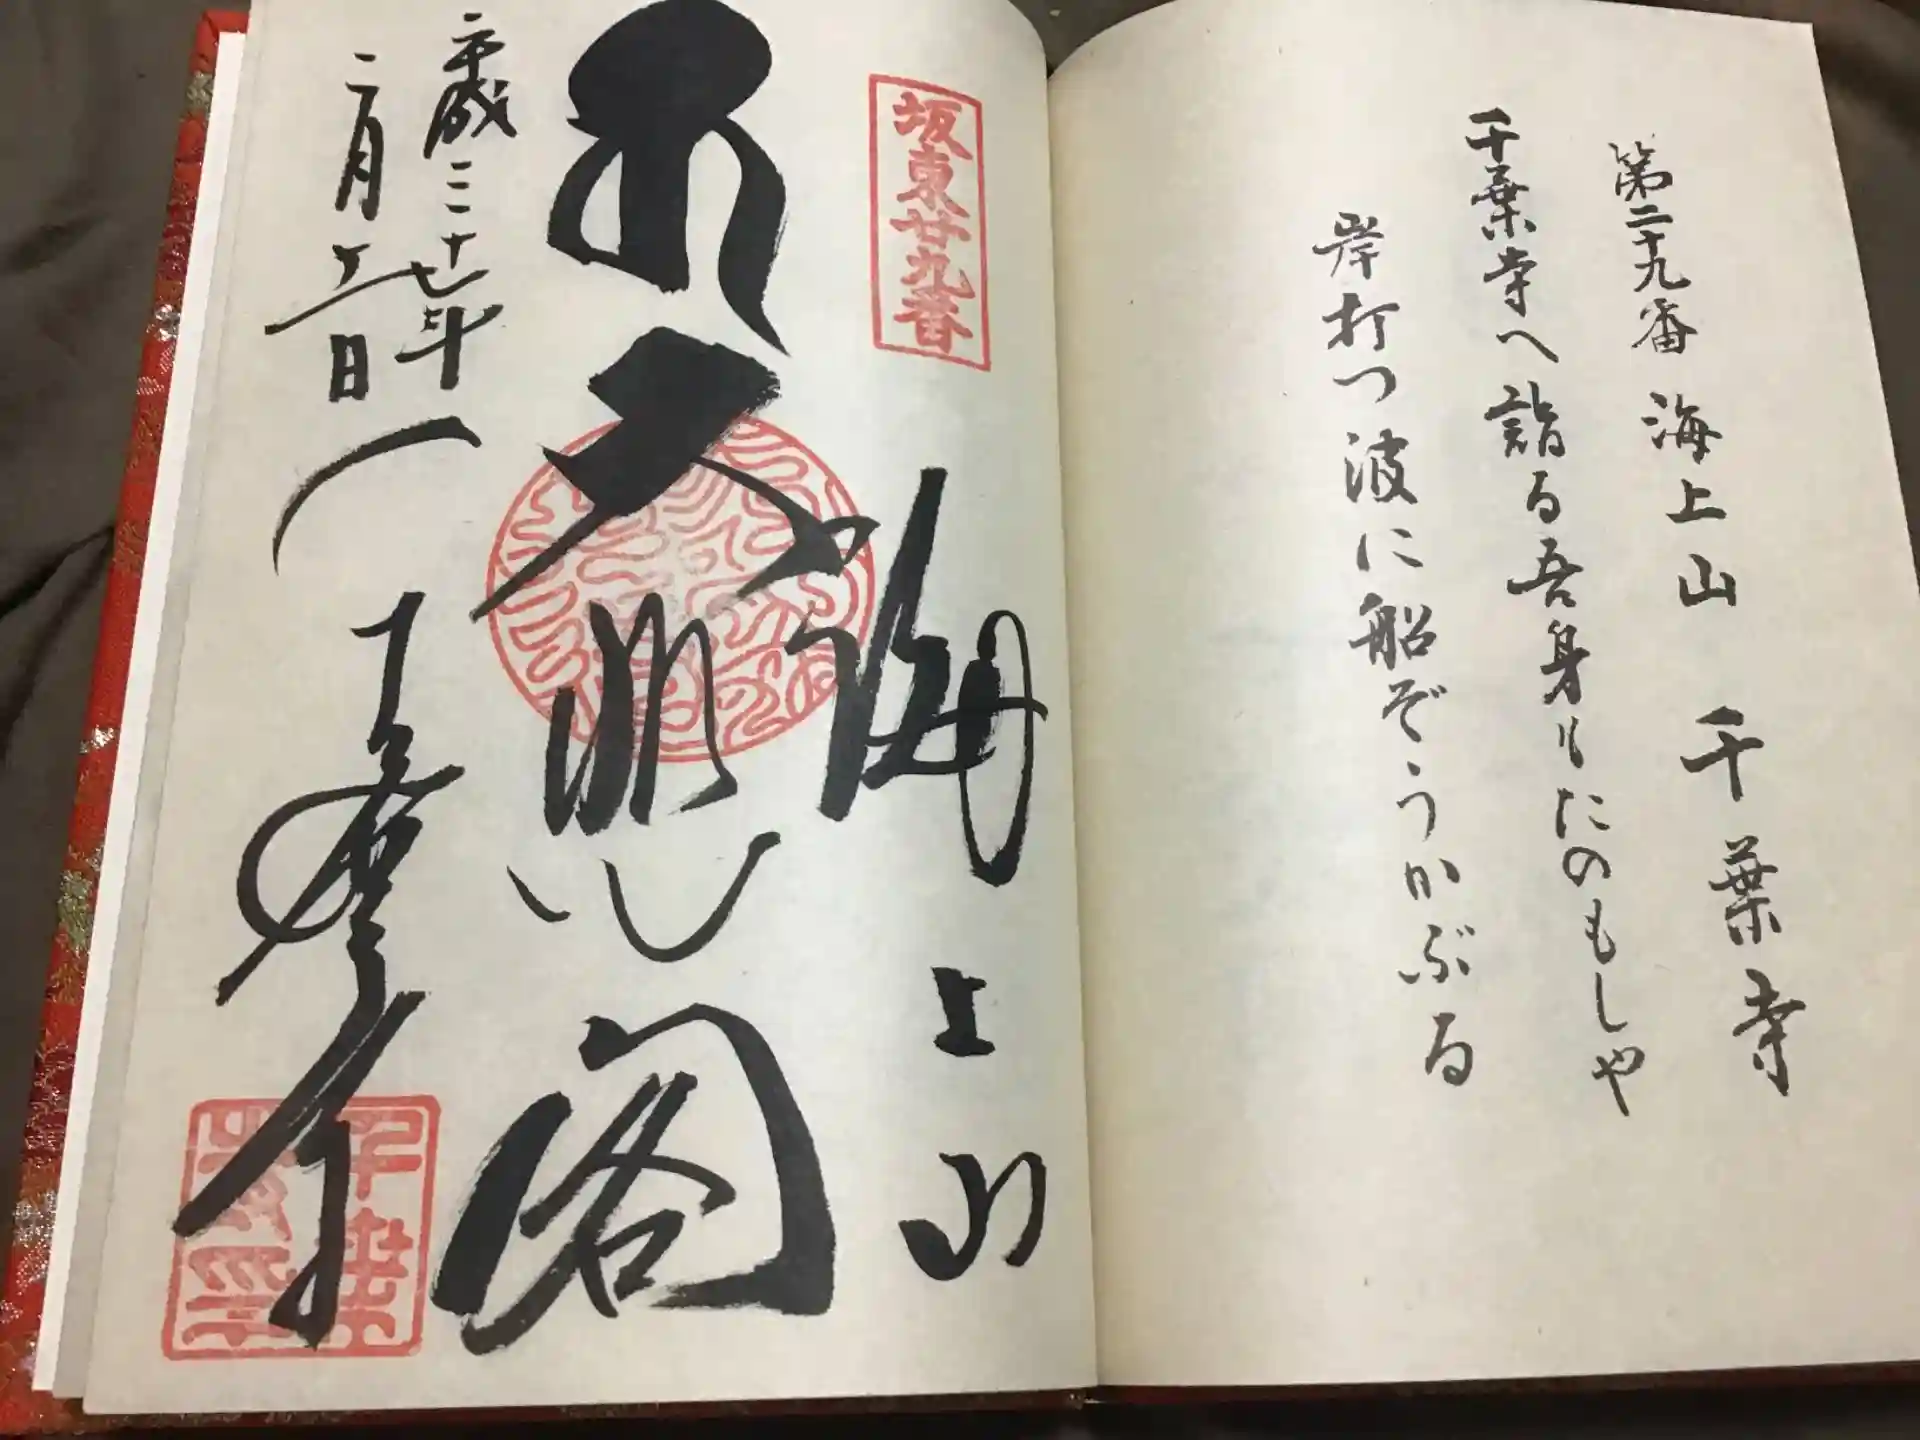 第二十九番 海上山 千葉寺
千葉寺へ詣る吾身もたのもしや
岸打つ波に船ぞうかぶる
坂東廿九番
海上山
大悲閣
平成二十七年
二月十五日
千葉寺